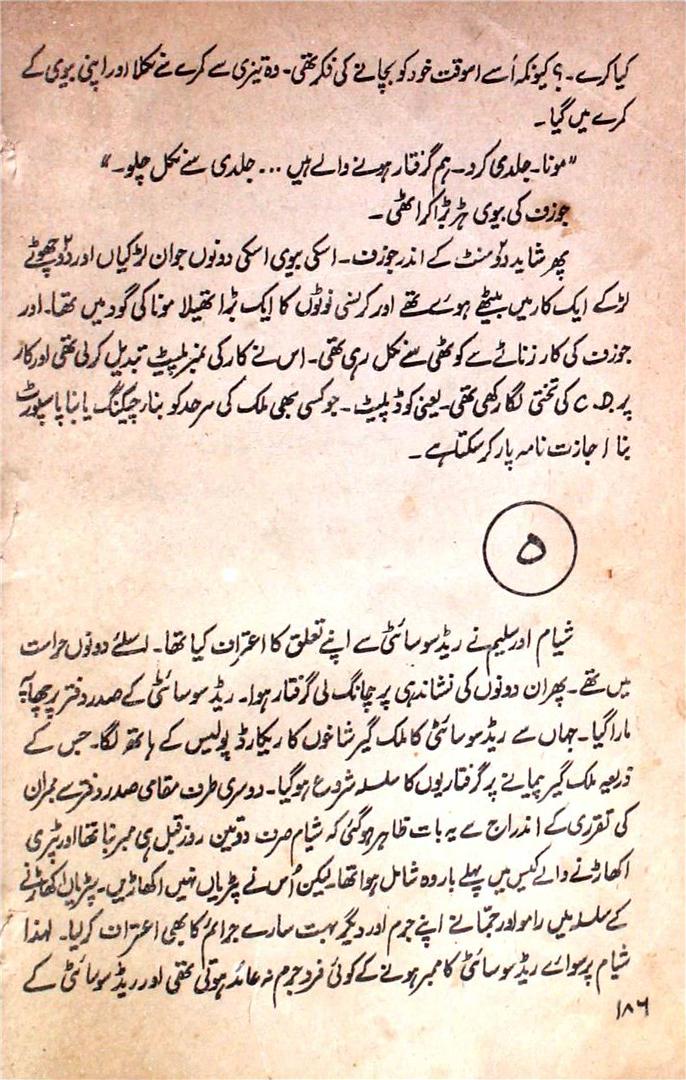 کیا کرے۔؟ کیونکہ اُسے اسوقت خود کو بچانے کی فکر تھی۔ وہ تیزی سے کمرے سے نکلا اور اپنی بیوی کے
کمرے میں گیا۔
"مونا۔ جلدی کرو۔ ہم گرفتار ہونے والے ہیں ... جلدی سے نکل چلو۔"
جوزف کی بیوی ہڑبڑا کر اٹھی۔
پھر شاید دو منٹ کے اندر جوزف۔ اسکی بیوی اسکی دونوں جوان لڑکیاں اور دو چھوٹے
لڑکے ایک کار میں بیٹھے ہوئے تھے اور کرنسی نوٹوں کا ایک بڑا تھیلا مونا کی گود میں تھا۔ اور
جوزف کی کار زناٹے سے کوٹھی سے نکل رہی تھی۔ اس نے کار کی نمبر پلیٹ تبدیل کرلی تھی اور کار
پر C.D کی تختی لگا رکھی تھی۔ یعنی کوڈ پلیٹ۔ جو کسی بھی ملک کی سرحد کو بنا چیکنگ یا بنا پاسپورٹ
بنا اجازت نامہ پار کر سکتا ہے۔
۵
شیام اور سلیم نے ریڈ سوسائٹی سے اپنے تعلق کا اعتراف کیا تھا۔ اسلئے دونوں حراست
میں تھے۔ پھر ان دونوں کی نشاندہی پر چانگ لی گرفتار ہوا۔ ریڈ سوسائٹی کے صدر دفتر پر چھاپہ
مارا گیا۔ جہاں سے ریڈ سوسائٹی کا ملک گیر شاخوں کا ریکارڈ پولیس کے ہاتھ لگا۔ جس کے
ذریعہ ملک گیر پیمانے پر گرفتاریوں کا سلسلہ شروع ہوگیا۔ دوسری طرف مقامی صدر دفتر سے ممبران
کی تقرری کے اندراج سے یہ بات ظاہر ہوگئی کہ شیام صرف دو تین روز قبل ہی ممبر بنا تھا اور پٹری
اکھاڑنے والے کیس میں پہلے بار وہ شامل ہوا تھا۔ لیکن اُس نے پٹریاں نہیں اکھاڑیں۔ پٹریاں اکھاڑنے
کے سلسلہ میں رامو اور جمّا نے اپنے جرم اور دیگر بہت سارے جرائم کا بھی اعتراف کرلیا۔ لہذا
شیام پر سوائے ریڈ سوسائٹی کا ممبر ہونے کے کوئی فرد جرم نہ عائد ہوتی تھی اور ریڈ سوسائٹی کے
۱۸۶